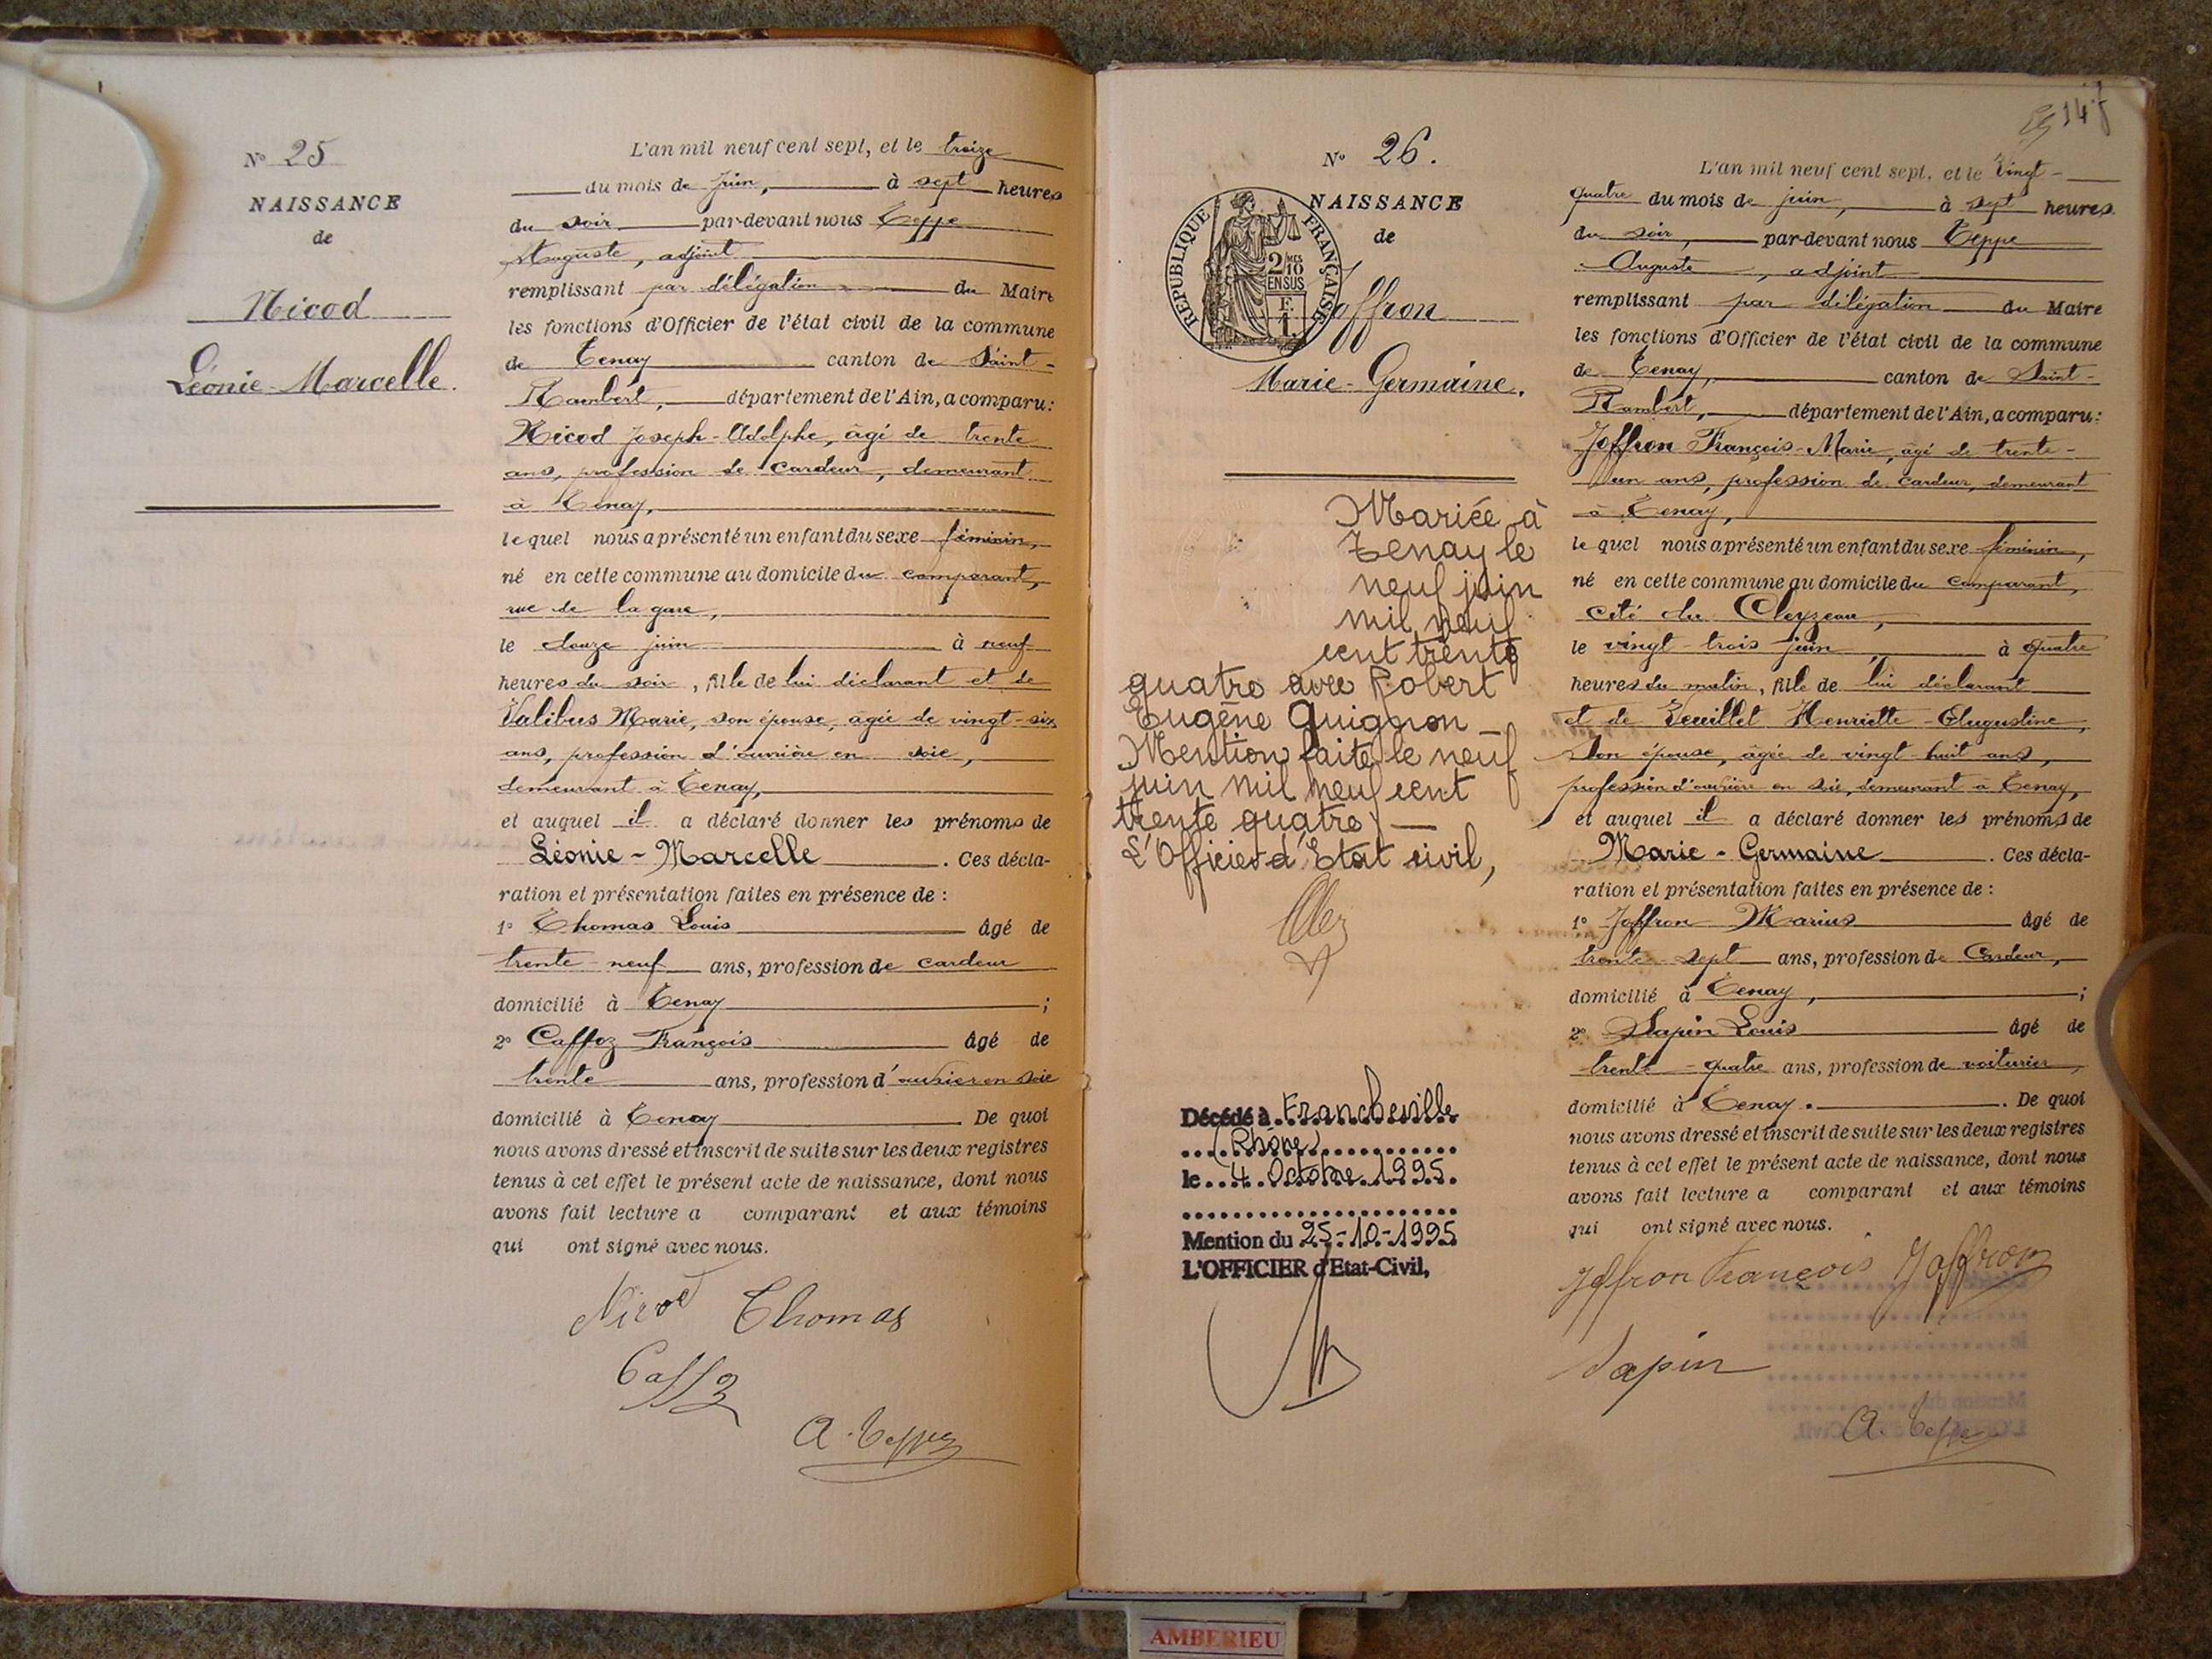 N° 25
NAISSANCE
de
Nicod
Léonie-Marcelle.
L'an mil neuf cent sept, et le treize
du mois de juin, à sept heures
du soir par-devant nous Teppe
Auguste, adjoint
remplissant par délégation du Maire
les fonctions d'Officier de l'état civil de la commune
de Tenay canton de Saint-
Rambert, département de l'Ain, a comparu:
Nicod Joseph-Adolphe, âgé de trente
ans, profession de cardeur, demeurant
à Tenay,
lequel nous a présenté un enfant du sexe féminin,
né en cette commune au domicile du comparant,
rue de la gare,
le douze juin à neuf
heures du soir, fille de lui déclarant et de
Valibus Marie, son épouse, âgée de vingt-six
ans, profession d'ouvrière en soie,
demeurant à Tenay,
et auquel il a déclaré donner les prénoms de
Léonie-Marcelle. Ces décla-
ration et présentation faites en présence de :
1° Thomas Louis âgé de
trente-neuf ans, profession de cardeur
domicilié à Tenay ;
2° Caffoz François âgé de
trente ans, profession d'ouvrier en soie
domicilié à Tenay. De quoi
nous avons dressé et inscrit de suite sur les deux registres
tenus à cet effet le présent acte de naissance, dont nous
avons fait lecture a comparant et aux témoins
qui ont signé avec nous.
Nicod Thomas
Caffoz
A. Teppe
147
N° 26.
NAISSANCE
de
RÉPUBLIQUE FRANÇAISE
2/10 MES
EN SUS
F.
1
Joffron
Marie-Germaine.
Mariée à
Tenay le
neuf juin
mil neuf
cent trente
quatre avec Robert
Eugène Guignon
Mention faite le neuf
juin mil neuf cent
trente quatre
L'Officier d'Etat civil,
Décédé à Francheville
(Rhône)
le 4 Octobre 1995.
Mention du 25-10-1995
L'OFFICIER d'Etat-Civil,
L'an mil neuf cent sept, et le vingt-
quatre du mois de juin, à sept heures
du soir, par-devant nous Teppe
Auguste, adjoint
remplissant par délégation du Maire
les fonctions d'Officier de l'état civil de la commune
de Tenay, canton de Saint-
Rambert, département de l'Ain, a comparu:
Joffron François-Marie, âgé de trente-
un ans, profession de cardeur, demeurant
à Tenay,
lequel nous a présenté un enfant du sexe féminin,
né en cette commune au domicile du comparant,
cité du Cleyzeau,
le vingt-trois juin à quatre
heures du matin, fille de lui déclarant
et de Veuillet Henriette-Augustine,
son épouse, âgée de vingt-huit ans,
profession d'ouvrière en soie, demeurant à Tenay,
et auquel il a déclaré donner les prénoms de
Marie-Germaine. Ces décla-
ration et présentation faites en présence de :
1° Joffron Marius âgé de
trente-sept ans, profession de Cardeur,
domicilié à Tenay, ;
2° Sapin Louis âgé de
trente-quatre ans, profession de voiturier,
domicilié à Tenay. De quoi
nous avons dressé et inscrit de suite sur les deux registres
tenus à cet effet le présent acte de naissance, dont nous
avons fait lecture a comparant et aux témoins
qui ont signé avec nous.
Joffron François Joffron
Sapin
A. Teppe
AMBERIEU